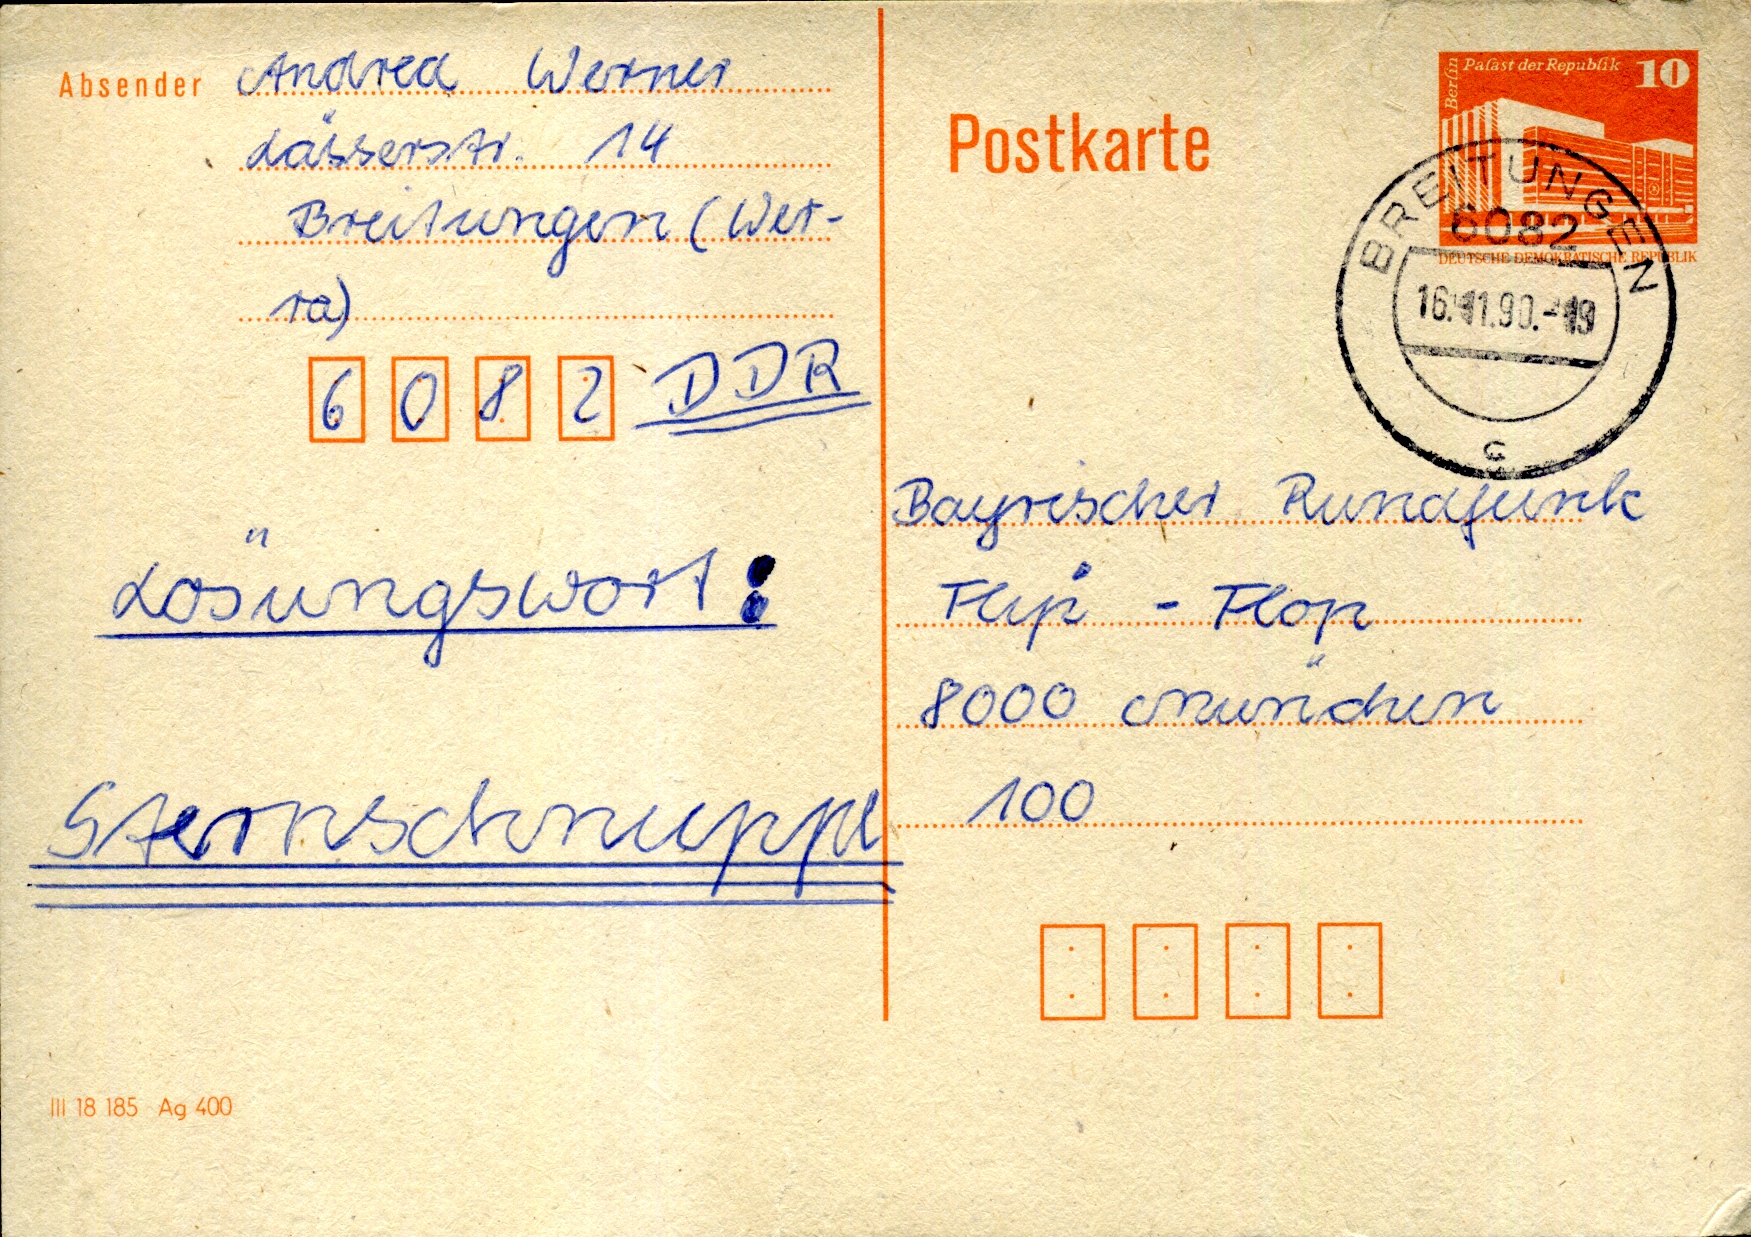 Absender Andrea Werner
Lässerstr. 14
Breitungen (Wer-
ra)
6 0 8 2 DDR
Lösungswort:
Sternschnuppe
III 18 185 Ag 400
Postkarte
Berlin
Palast der Republik 10
DEUTSCHE DEMOKRATISCHE REPUBLIK
BREITUNGEN
6082
16.11.90.-19
c
Bayrischer Rundfunk
Flip - Flop
8000 München
100